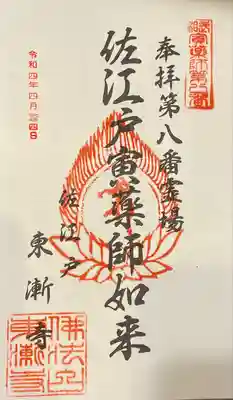 武相寅薬師第八番
奉拝第八番霊場
佐江戸寅薬師如来
佐江戸
東漸寺
佛法山
東漸寺
令和四年四月